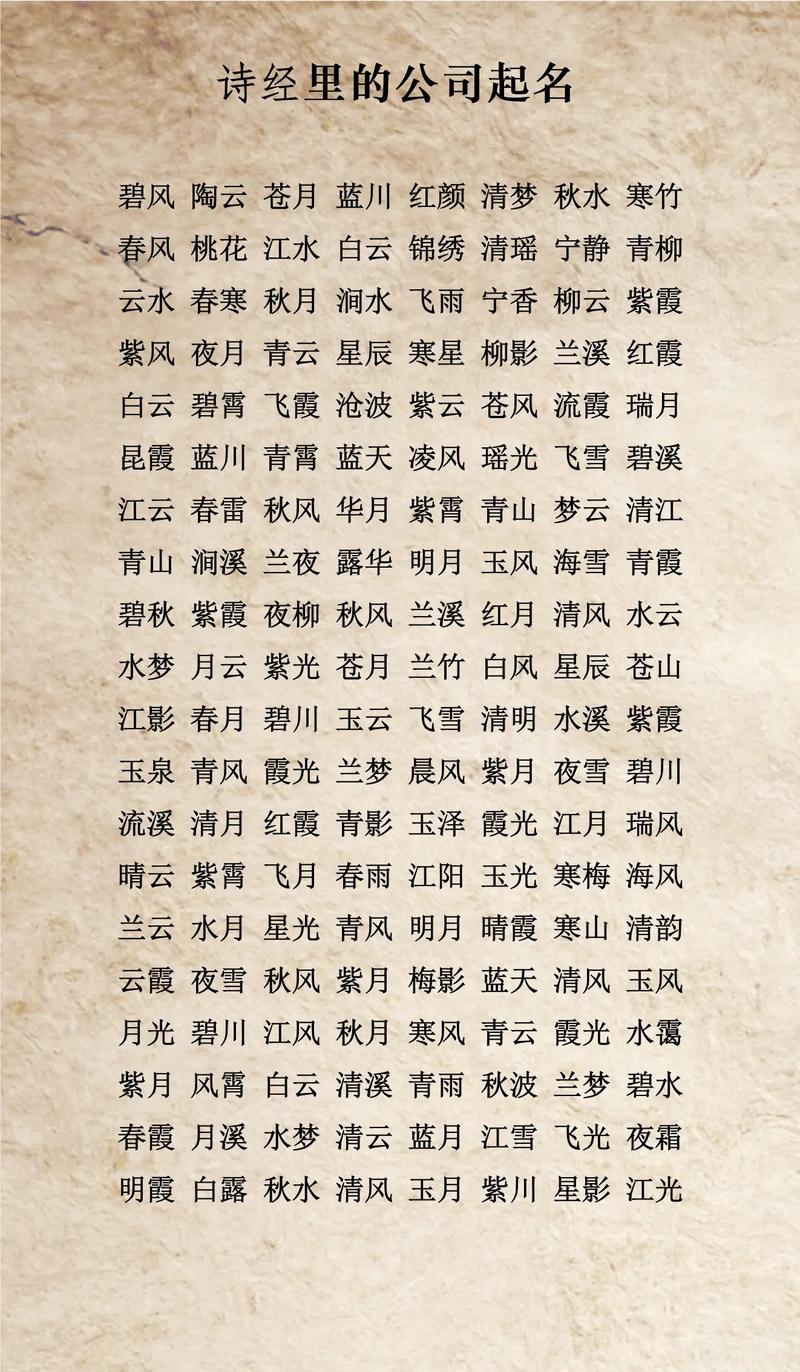 诗经里的公司起名
碧风 陶云 苍月 蓝川 红颜 清梦 秋水 寒竹
春风 桃花 江水 白云 锦绣 清瑶 宁静 青柳
云水 春寒 秋月 涧水 飞雨 宁香 柳云 紫霞
紫风 夜月 青云 星辰 寒星 柳影 兰溪 红霞
白云 碧霄 飞霞 沧波 紫云 苍风 流霞 瑞月
昆霞 蓝川 青霄 蓝天 凌风 瑶光 飞雪 碧溪
江云 春雷 秋风 华月 紫霄 青山 梦云 清江
青山 涧溪 兰夜 露华 明月 玉风 海雪 青霞
碧秋 紫霞 夜柳 秋风 兰溪 红月 清风 水云
水梦 月云 紫光 苍月 兰竹 白风 星辰 苍山
江影 春月 碧川 玉云 飞雪 清明 水溪 紫霞
玉泉 青风 霞光 兰梦 晨风 紫月 夜雪 碧川
流溪 清月 红霞 青影 玉泽 霞光 江月 瑞风
晴云 紫霄 飞月 春雨 江阳 玉光 寒梅 海风
兰云 水月 星光 青风 明月 晴霞 寒山 清韵
云霞 夜雪 秋风 紫月 梅影 蓝天 清风 玉风
月光 碧川 江风 秋月 寒风 青云 霞光 水霭
紫月 风霄 白云 清溪 青雨 秋波 兰梦 碧水
春霞 月溪 水梦 清云 蓝月 江雪 飞光 夜霜
明霞 白露 秋水 清风 玉月 紫川 星影 江光